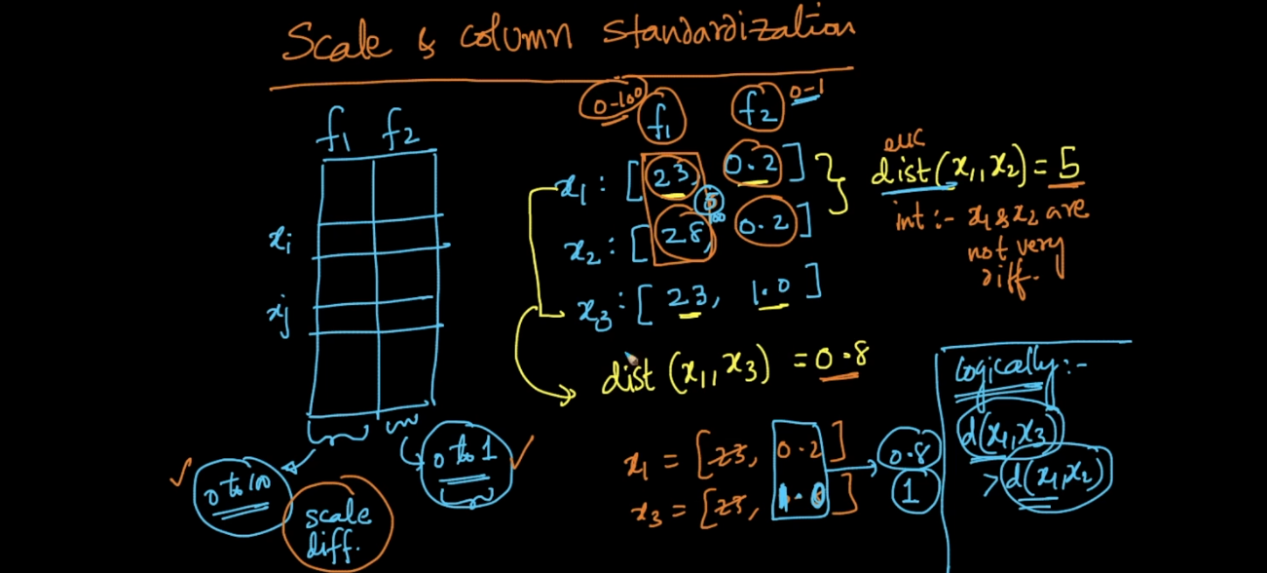 Scale & column standardization
f1 f2
xi
xj
0 to 100
0 to 1
scale
diff.
0-100 f1 f2 0-1
x1 : [23, 0.2]
x2 : [28, 0.2]
5
100
x3 : [23, 1.0]
euc
dist(x1, x2) = 5
int :- x1 & x2 are
not very
diff.
dist (x1, x3) = 0.8
x1 = [23, 0.2]
x3 = [23, 1.0]
0.8
1
Logically :-
d(x1, x3)
> d(x1, x2)